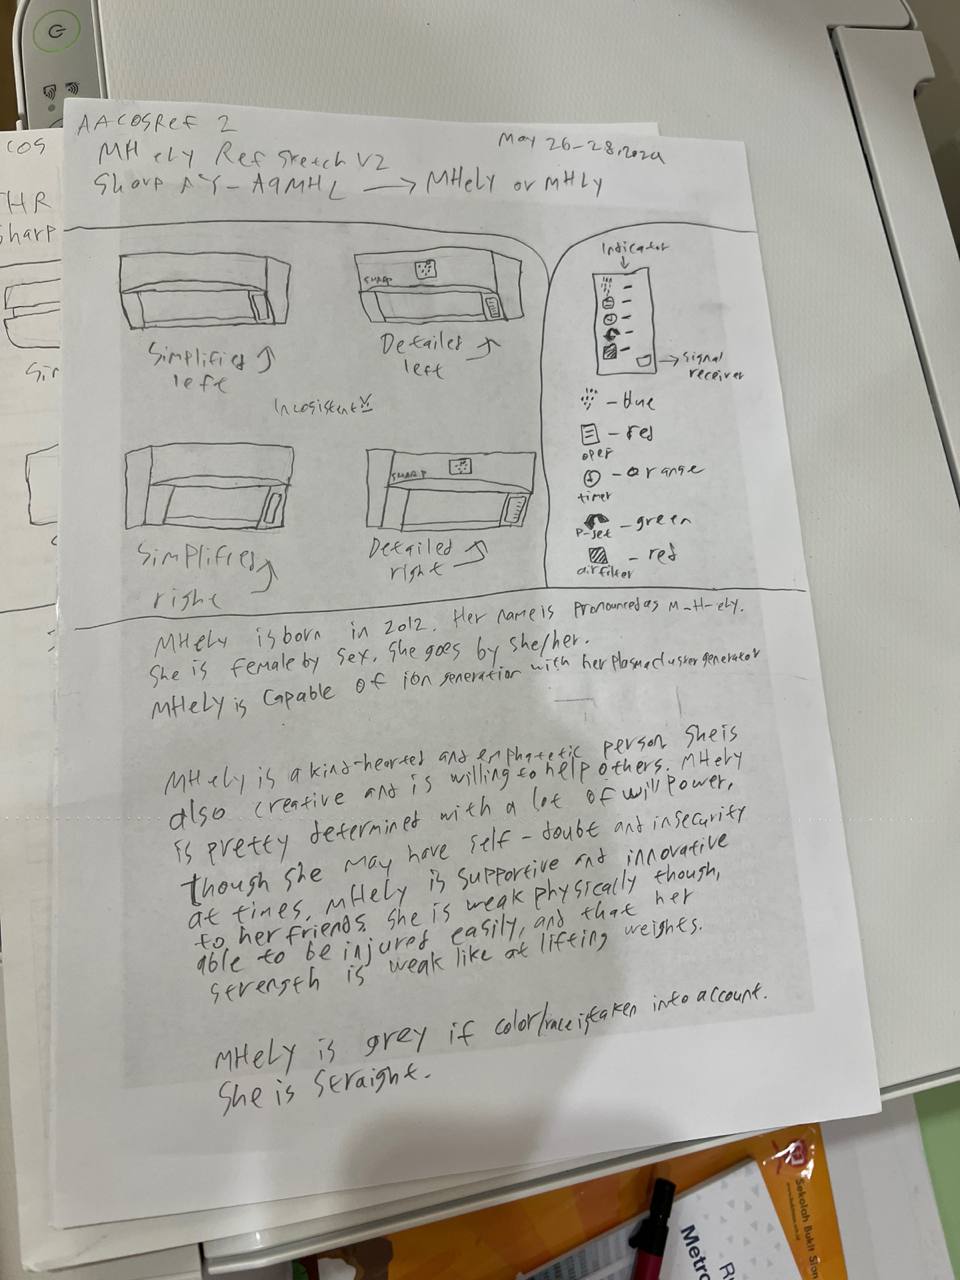 AACOSRef 2
May 26-28, 2024
MHely Ref Sketch V2
Sharp AY-A9MHL → MHely or MHLy
Simplified left
SHARP
Detailed left
Incosistent
Simplified right
SHARP
Detailed right
Indicator
→ signal receiver
- blue
- red
oper
- orange
timer
- green
P-set
- red
airfilter
MHely is born in 2012. Her name is pronounced as M-H-ely.
She is female by sex. She goes by she/her.
MHely is capable of ion generation with her plasmacluster generator
MHely is a kind-hearted and emphatetic person she is
also creative and is willing to help others. MHely
is pretty determined with a lot of willpower,
though she may have self-doubt and insecurity
at times. MHely is supportive and innovative
to her friends. She is weak physically though,
able to be injured easily, and that her
strength is weak like at lifting weights.
MHely is grey if color/race is taken into account.
She is straight.
COS
THR
Sharp
Sekolah Bukit Sion
Metro